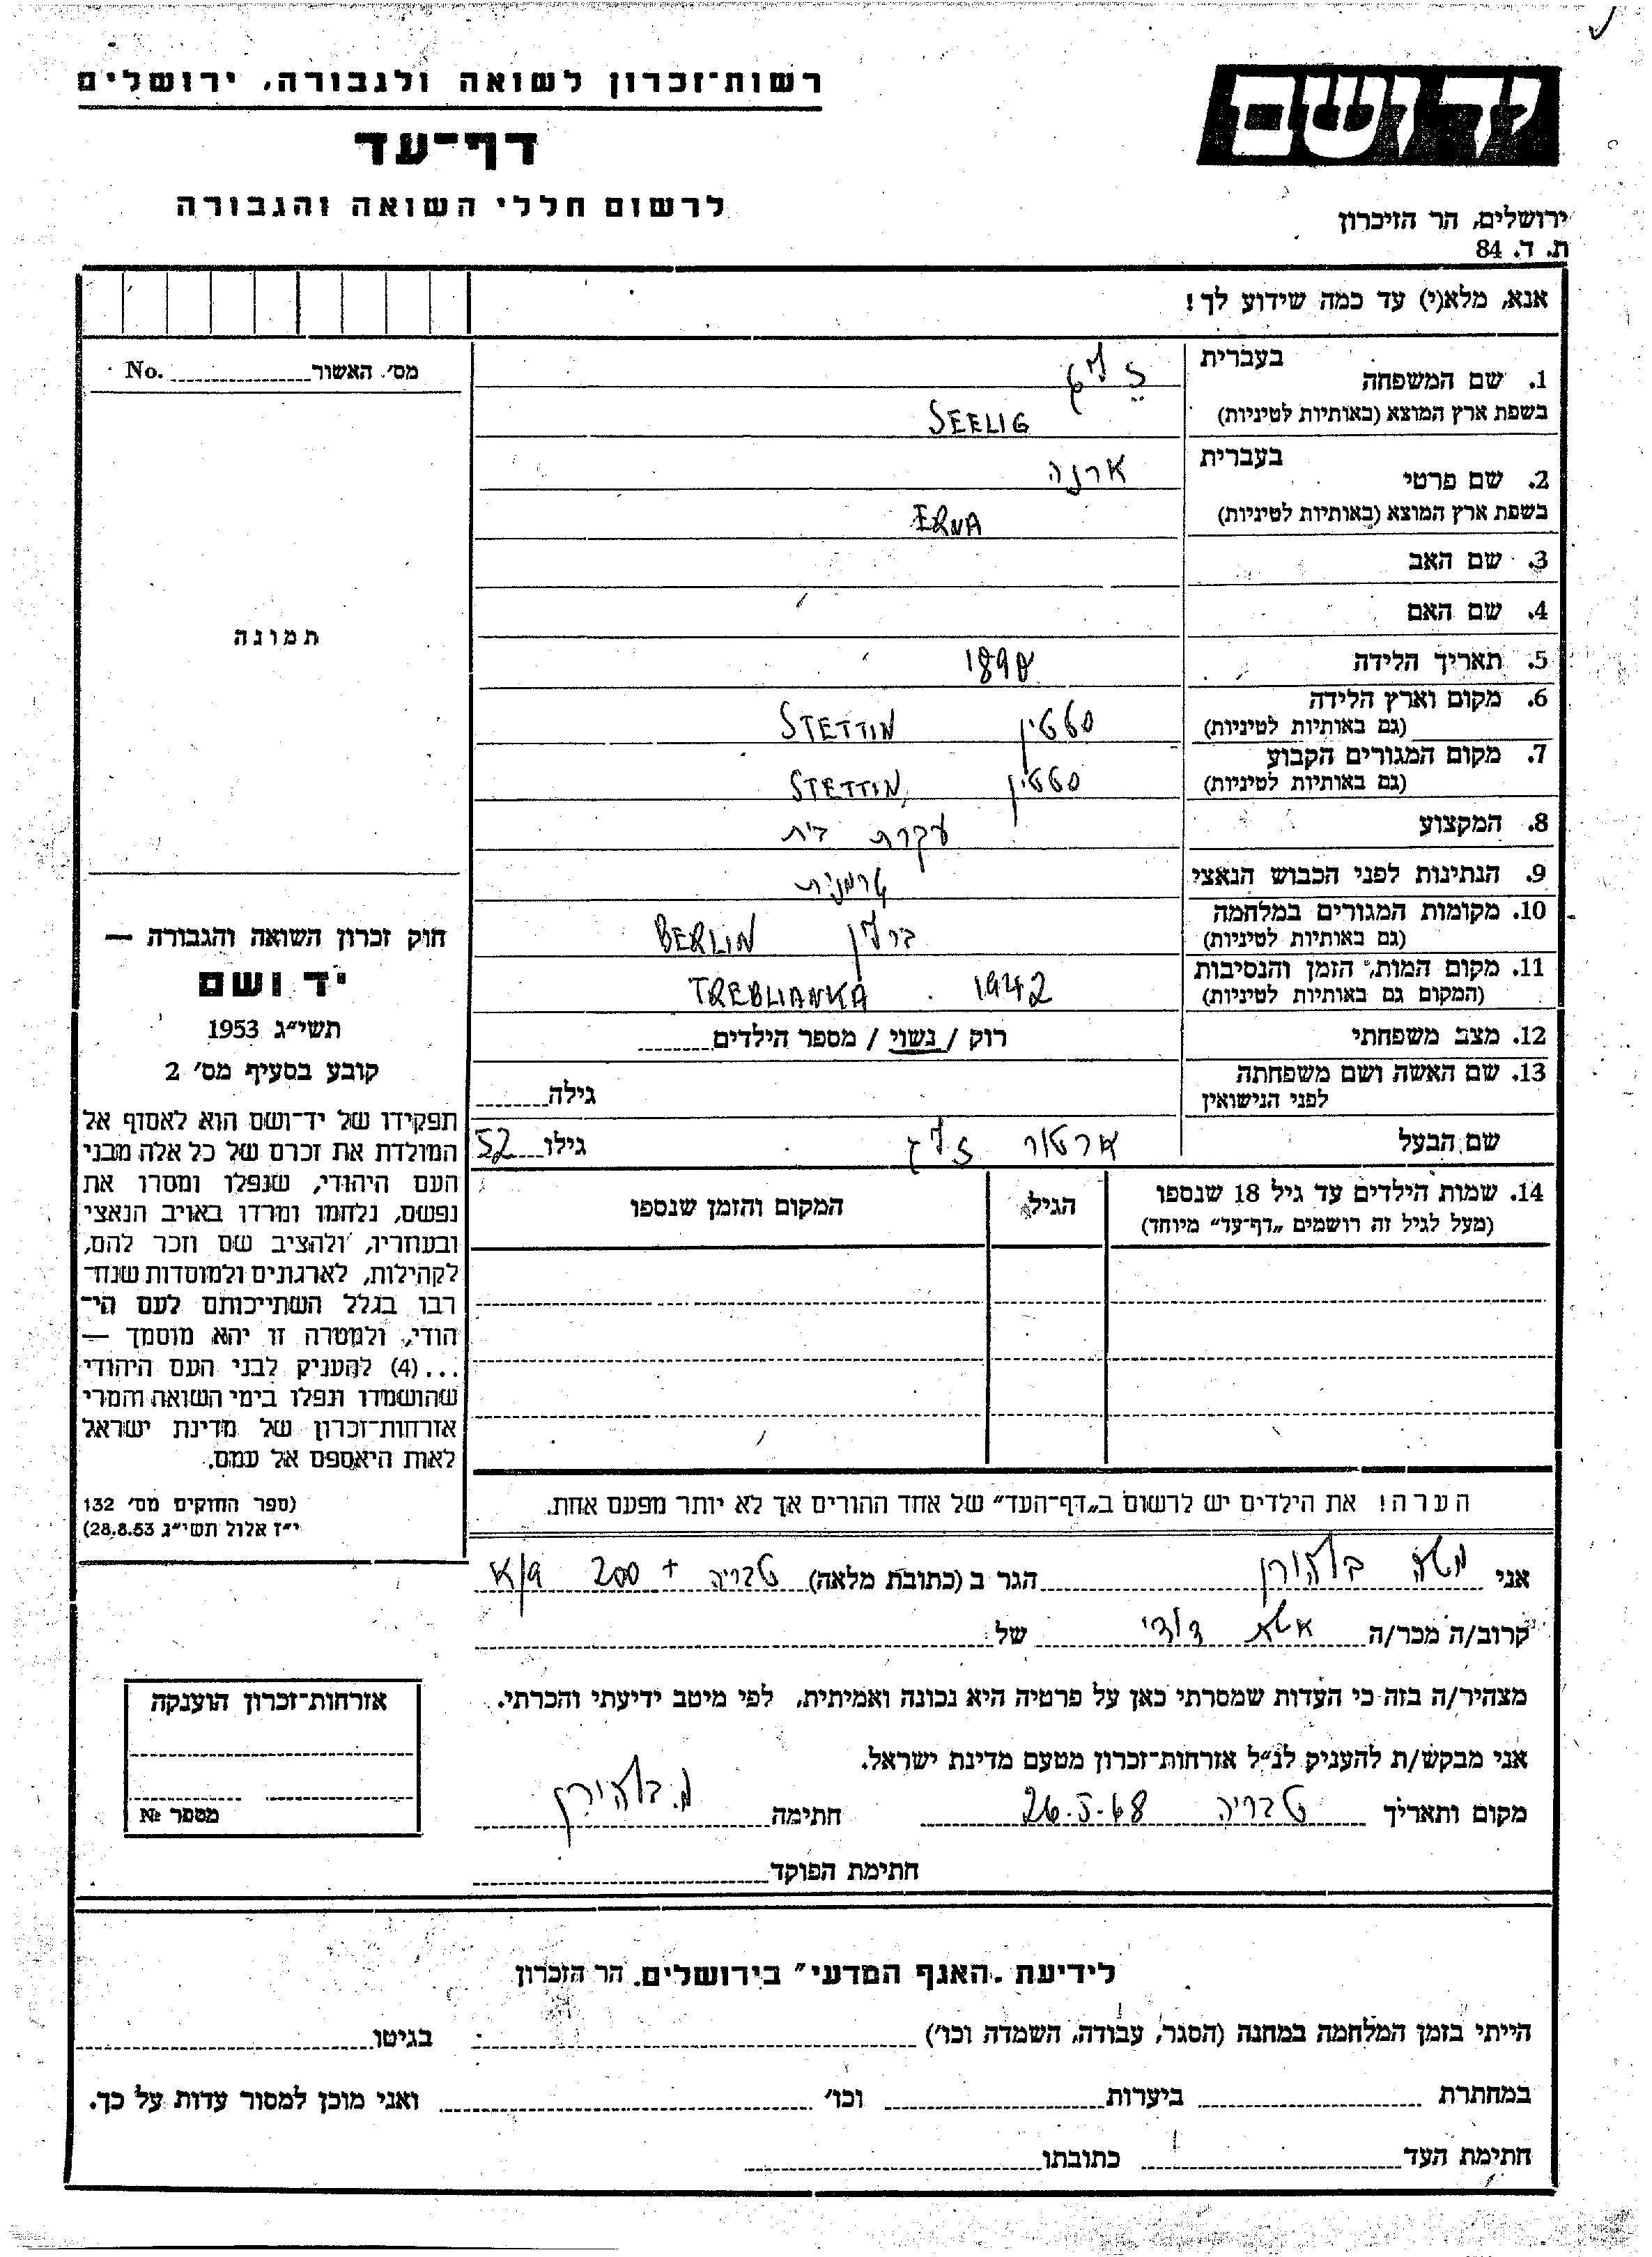 רשות־זכרון לשואה ולגבורה, ירושלים
דף־עד
לרשום חללי השואה והגבורה
יד ושם
ירושלים, הר הזיכרון
ת. ד. 84
אנא, מלא(י) עד כמה שידוע לך!
מס׳ האשור No.
תמונה
חוק זכרון השואה והגבורה —
יד ושם
תשי״ג 1953
קובע בסעיף מס׳ 2
תפקידו של יד־ושם הוא לאסוף אל
המולדת את זכרם של כל אלה מבני
העם היהודי, שנפלו ומסרו את
נפשם, נלחמו ומרדו באויב הנאצי
ובעוזריו, ולהציב שם וזכר להם,
לקהילות, לארגונים ולמוסדות שנח־
רבו בגלל השתייכותם לעם הי־
הודי, ולמטרה זו יהא מוסמך —
...(4) להעניק לבני העם היהודי
שהושמדו ונפלו בימי השואה והמרי
אזרחות־זכרון של מדינת ישראל
לאות היאספם אל עמם.
(ספר החוקים מס׳ 132
י״ז אלול תשי״ג 28.8.53)
בעברית
1. שם המשפחה זליג
בשפת ארץ המוצא (באותיות לטיניות) SEELIG
בעברית
2. שם פרטי ארנה
בשפת ארץ המוצא (באותיות לטיניות) ERNA
3. שם האב
4. שם האם
5. תאריך הלידה 1898
6. מקום וארץ הלידה
(גם באותיות לטיניות) סטטין STETTIN
7. מקום המגורים הקבוע
(גם באותיות לטיניות) סטטין STETTIN
8. המקצוע עקרת בית
9. הנתינות לפני הכבוש הנאצי גרמנית
10. מקומות המגורים במלחמה
(גם באותיות לטיניות) ברלין BERLIN
11. מקום המות, הזמן והנסיבות
(המקום גם באותיות לטיניות) 1942 TREBLIANKA
12. מצב משפחתי רוק / נשוי / מספר הילדים
13. שם האשה ושם משפחתה
לפני הנישואין גילה
שם הבעל ארטור זליג גילו 52
14. שמות הילדים עד גיל 18 שנספו הגיל המקום והזמן שנספו
(מעל לגיל זה רושמים „דף־עד״ מיוחד)
הערה! את הילדים יש לרשום ב„דף־העד״ של אחד ההורים אך לא יותר מפעם אחת.
אני משה הגר ב (כתובת מלאה) טבריה 200
קרוב/ה מכר/ה אשת דודי של
מצהיר/ה בזה כי העדות שמסרתי כאן על פרטיה היא נכונה ואמיתית, לפי מיטב ידיעתי והכרתי.
אני מבקש/ת להעניק לנ״ל אזרחות־זכרון מטעם מדינת ישראל.
מקום ותאריך טבריה 26.5.68 חתימה
חתימת הפוקד
אזרחות־זכרון הוענקה
מספר №
לידיעת „האגף המדעי״ בירושלים, הר הזכרון
הייתי בזמן המלחמה במחנה (הסגר, עבודה, השמדה וכו׳) בגיטו
במחתרת ביערות וכו׳ ואני מוכן למסור עדות על כך.
חתימת העד כתובתו